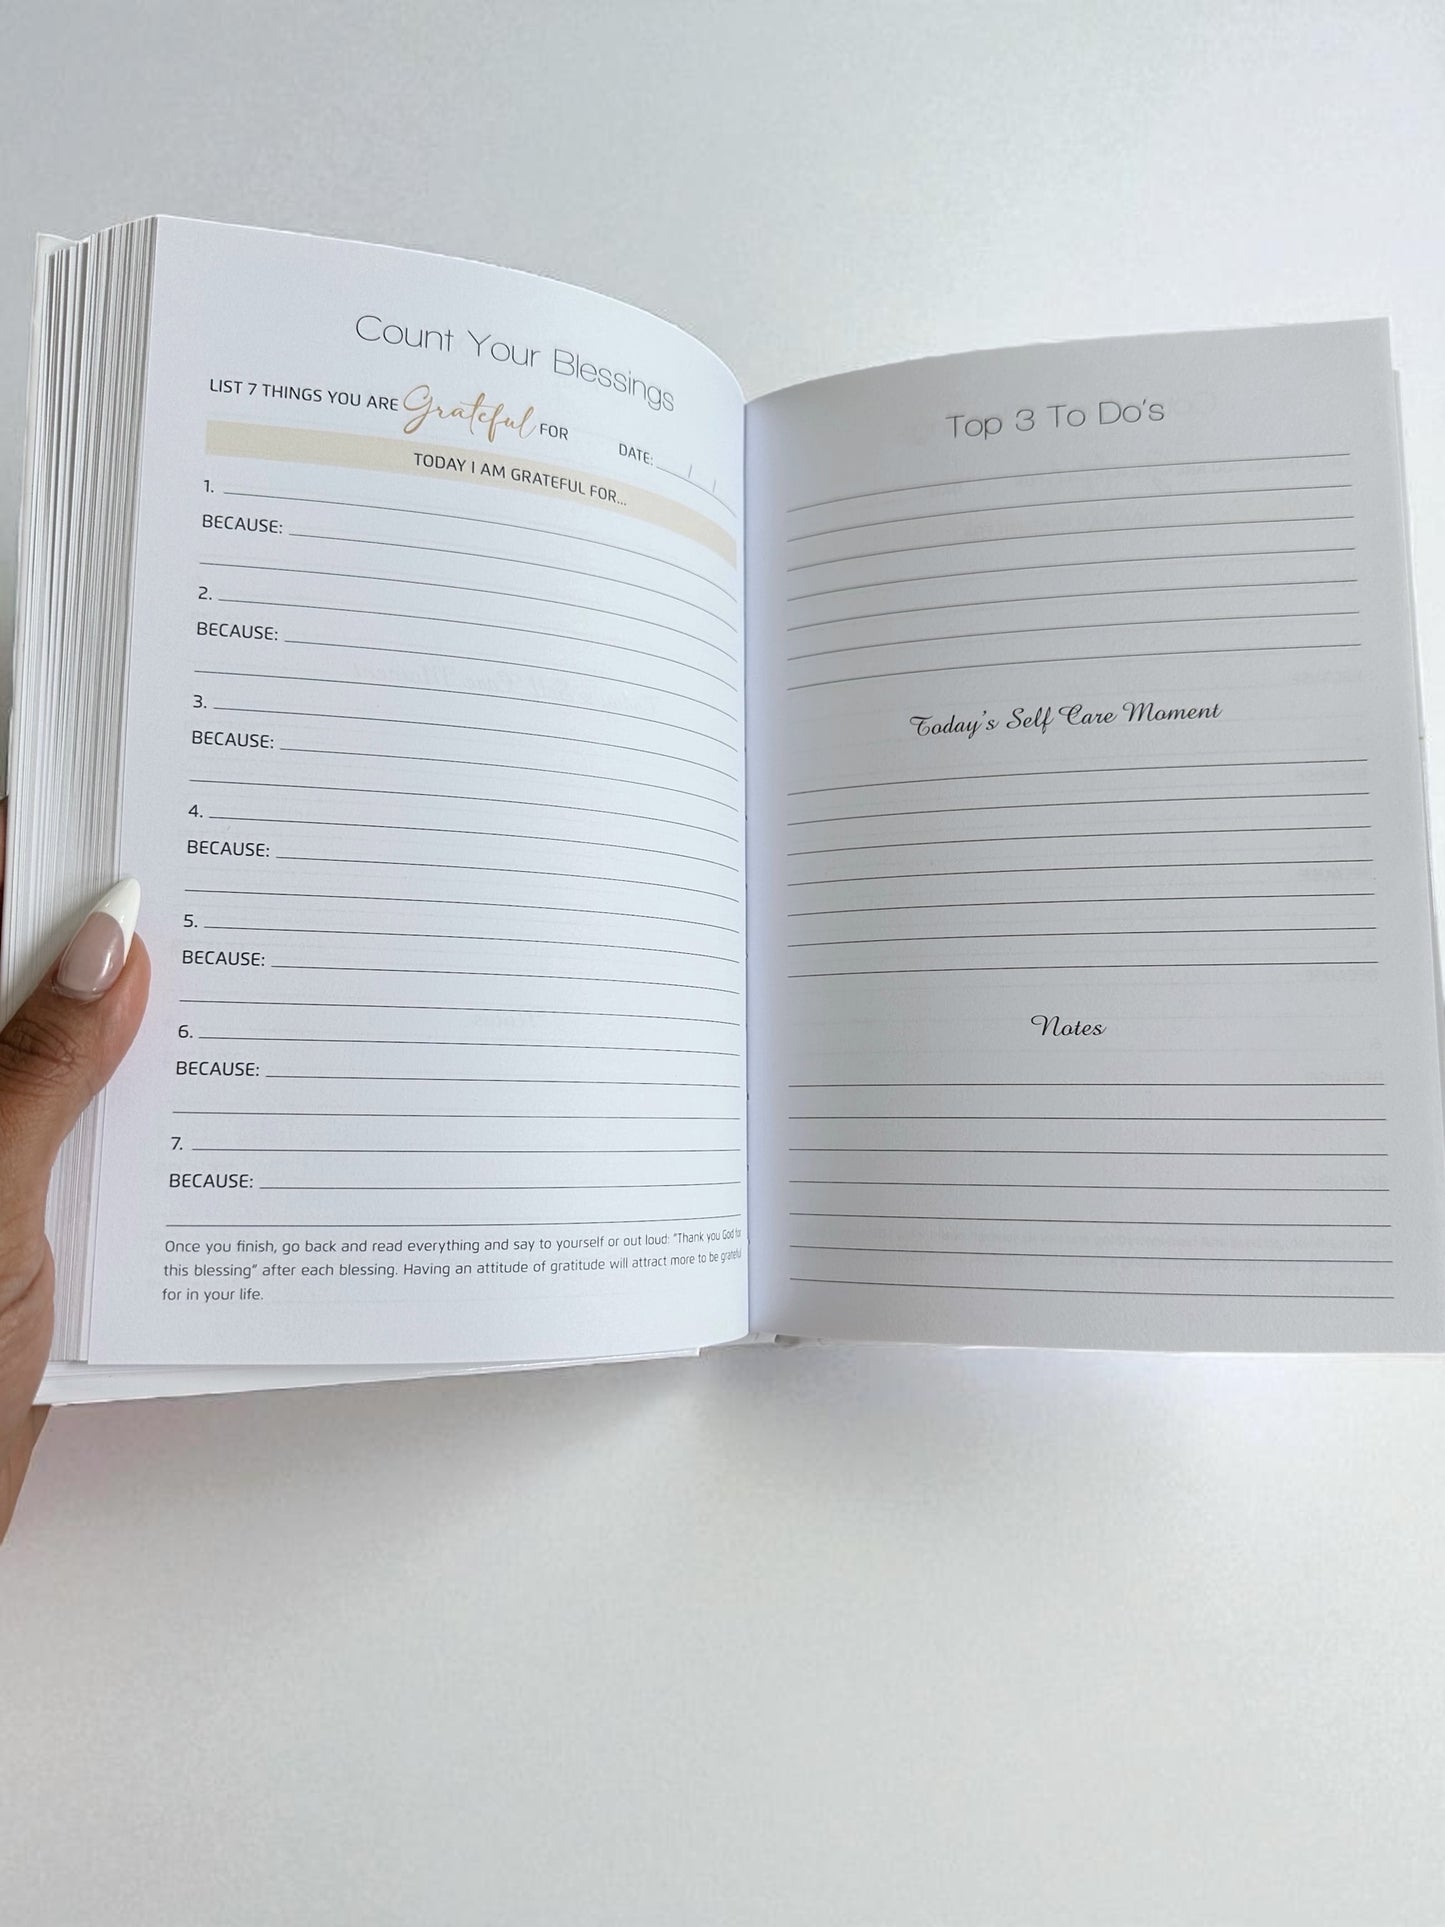 Count Your Blessings
LIST 7 THINGS YOU ARE Grateful FOR
DATE: __/__/__
TODAY I AM GRATEFUL FOR...
1.
BECAUSE:
2.
BECAUSE:
3.
BECAUSE:
4.
BECAUSE:
5.
BECAUSE:
6.
BECAUSE:
7.
BECAUSE:
Once you finish, go back and read everything and say to yourself or out loud: "Thank you God for
this blessing" after each blessing. Having an attitude of gratitude will attract more to be grateful
for in your life.
Top 3 To Do's
Today's Self Care Moment
Notes